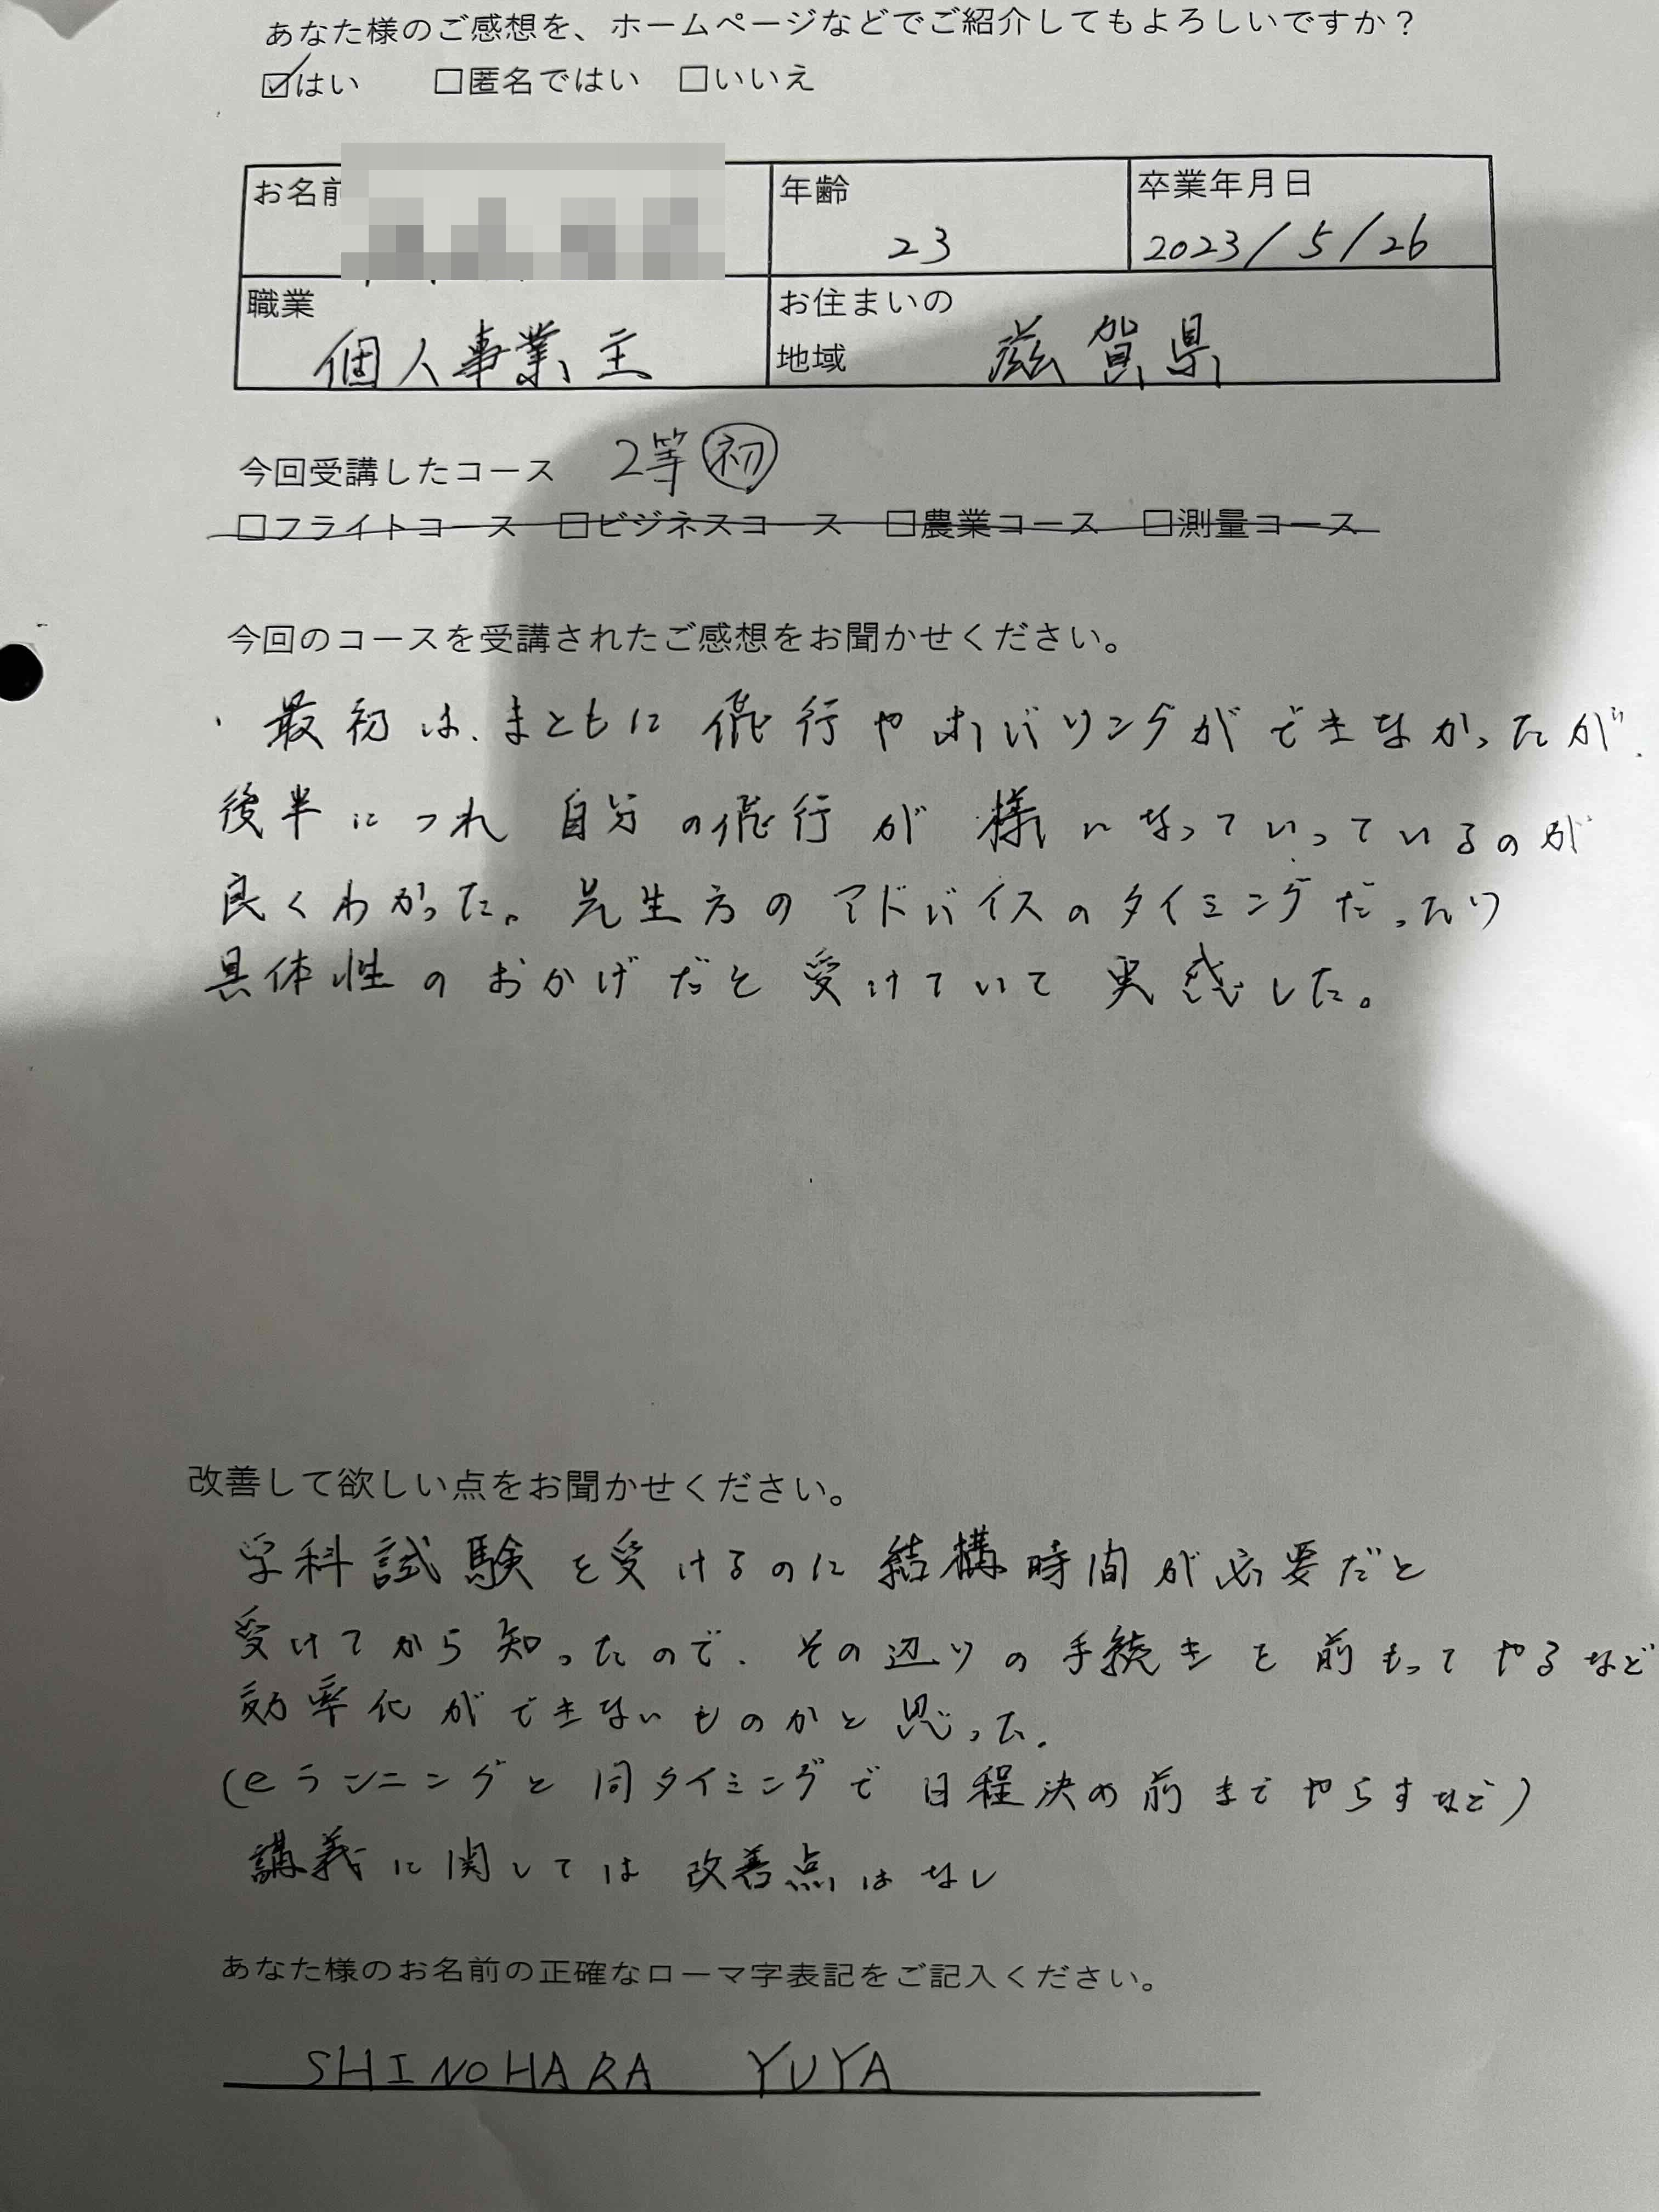 あなた様のご感想を、ホームページなどでご紹介してもよろしいですか？
☑はい　□匿名ではい　□いいえ
お名前
年齢
23
卒業年月日
2023/5/26
職業
個人事業主
お住まいの
地域
滋賀県
今回受講したコース　2等㊕初
□フライトコース　□ビジネスコース　□農業コース　□測量コース
今回のコースを受講されたご感想をお聞かせください。
・最初は、まともに飛行やホバリングができなかったが、
後半につれ自分の飛行が様になっていっているのが
良くわかった。先生方のアドバイスのタイミングだったり
具体性のおかげだと受けていて実感した。
改善して欲しい点をお聞かせください。
学科試験を受けるのに結構時間が必要だと
受けてから知ったので、その辺りの手続きを前もってやるなど
効率化ができないものかと思った。
(eランニングと同タイミングで日程決め前までやらすなど)
講義に関しては改善点はなし
あなた様のお名前の正確なローマ字表記をご記入ください。
SHINOHARA YUYA